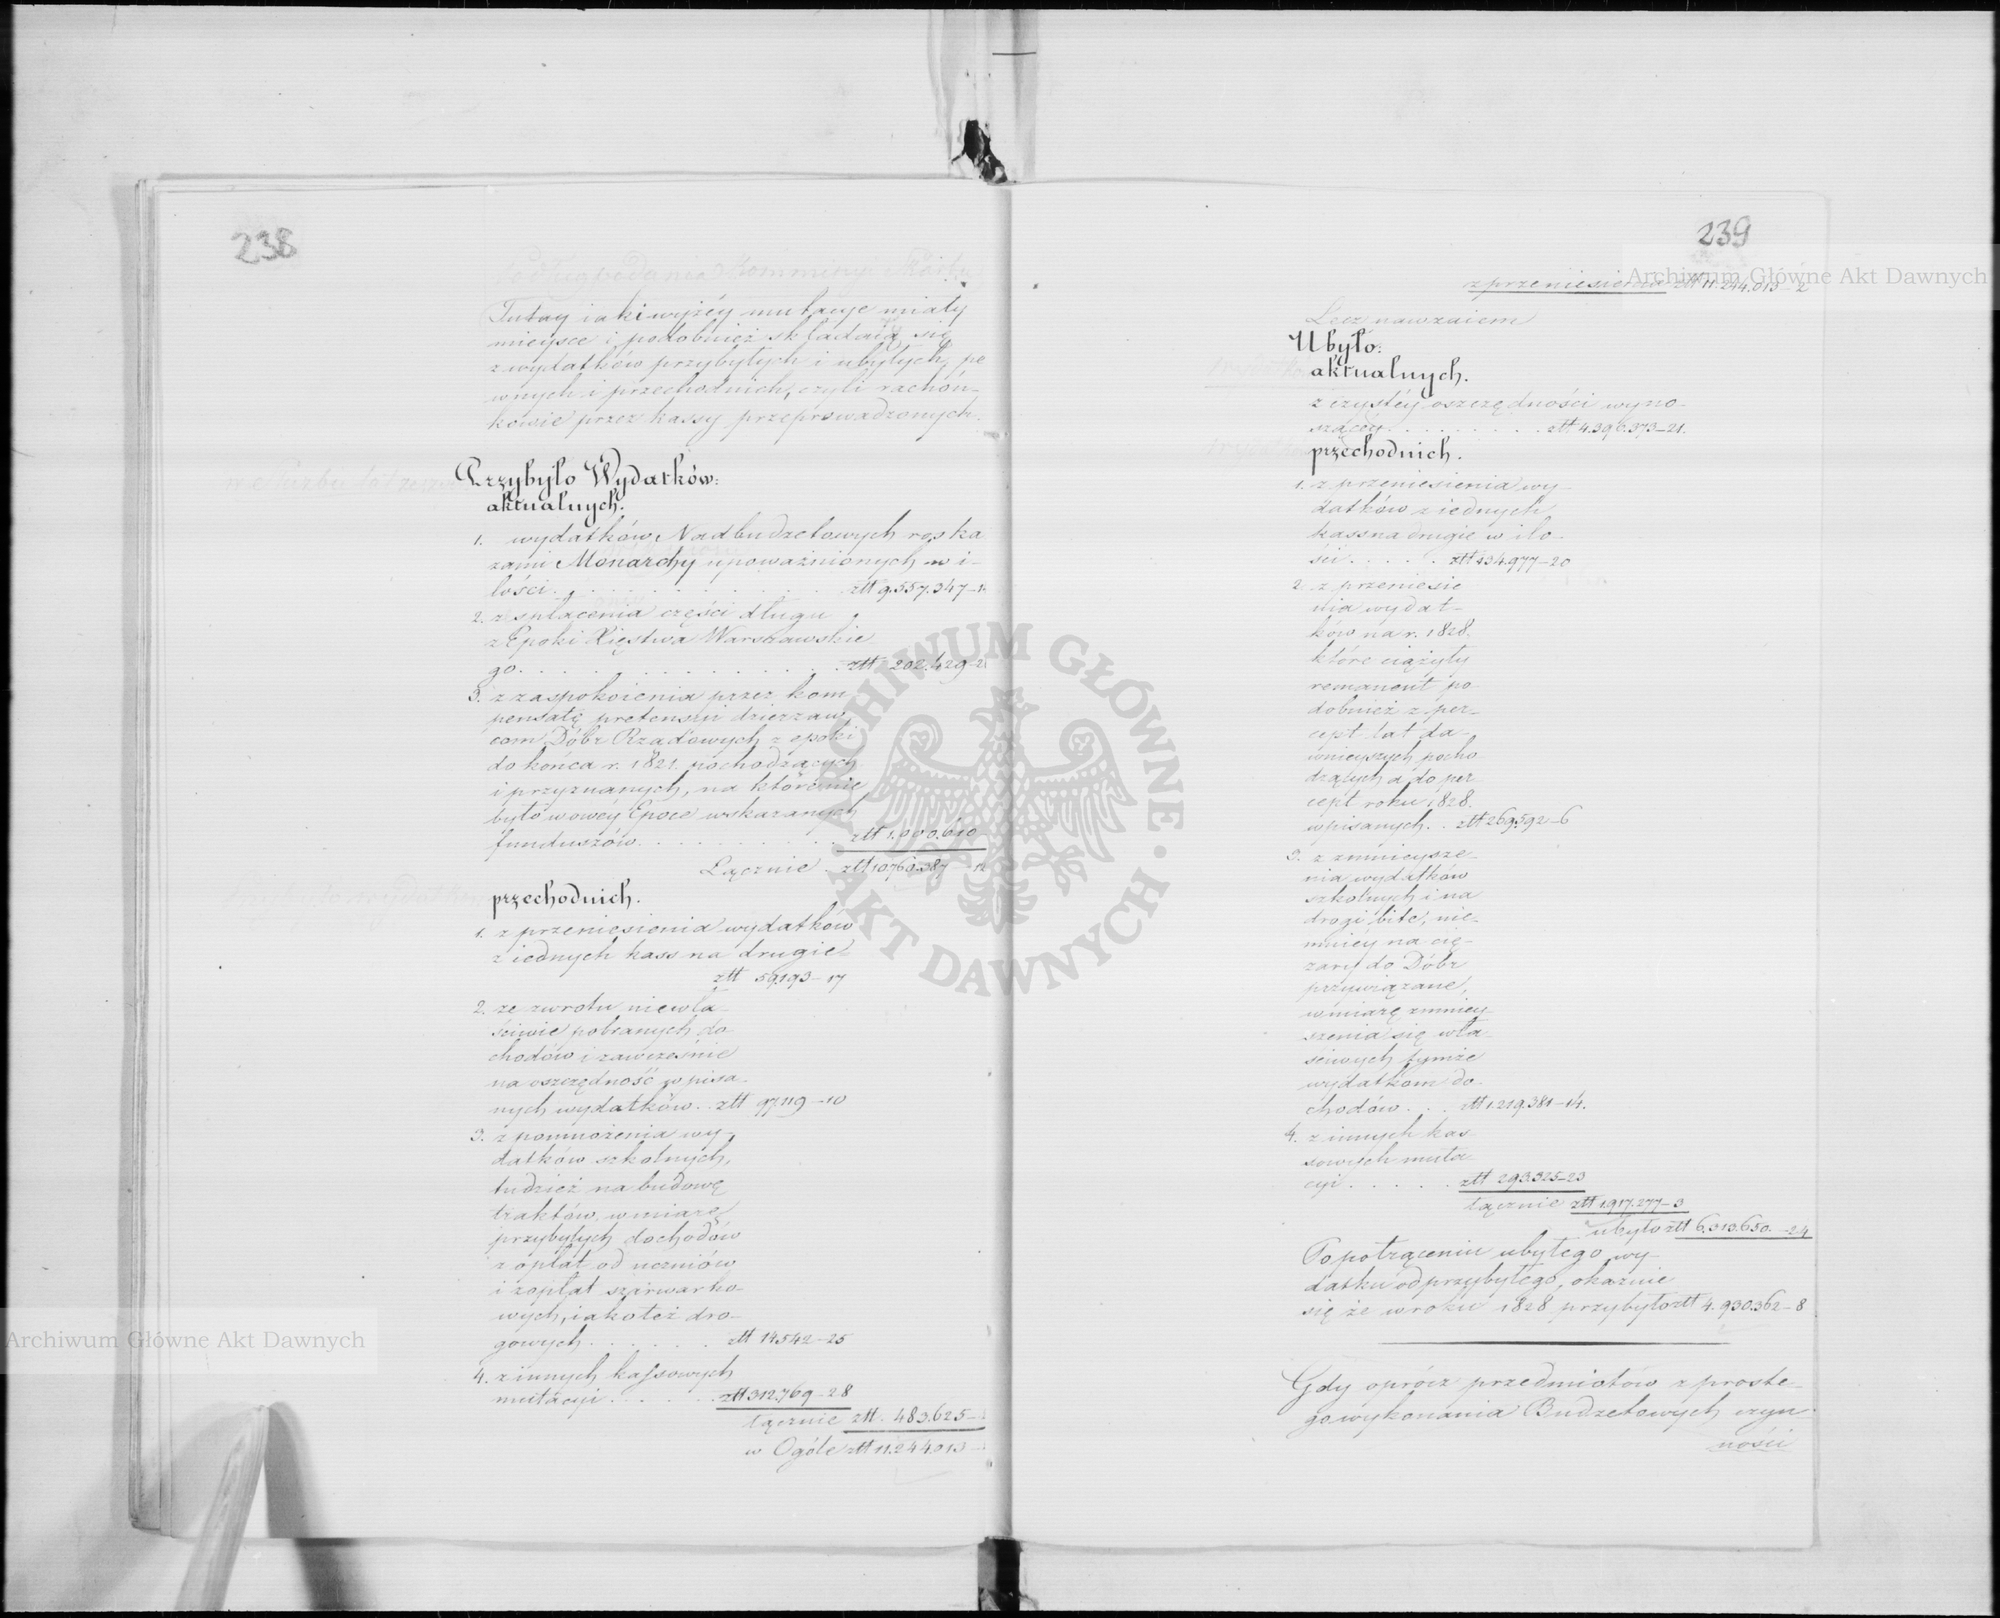 238
Tutay iak i wyżéy mutacye miały
mieysce i podobnież składaią się
z wydatków przybyłych i ubyłych, pe
wnych i przechodnich, czyli rachón-
kowie przez kassy przeprowadzonych.
Przybyło Wydatków:
aktualnych.
1. wydatków Nadbudżetowych roska
zami Monarchy upoważnionych w i-
lości . . . złł 9.557.347-1
2. z spłacenia części długu
z Epoki Xięstwa Warszawskie
go . . . złł 202.429-21
3. z zaspokoienia przez kom
pensatę pretensii dzierzaw
com Dóbr Rządowych z epoki
do końca r. 1821. pochodzących
i przyznanych, na które nie
było w owéy Epoce wskazanych
funduszów . . . złł 1.000.610
Łącznie . złł 10760.387-12
przechodnich.
1. z przeniesienia wydatków
z iednych kass na drugie
złł 59.193-17
2. ze zwrotu niewła
ściwie pobranych do
chodów i zawcześnie
na oszczędność wpisa
nych wydatków . . złł 97.119-10
3. z pomnożenia wy-
datków szkolnych,
tudzież na budowę
traktów, w miarę
przybyłych dochodów
z opłat od uczniów
i z opłat szarwarko
wych, iako też dro-
gowych . . . złł 14.542-25
4. z innych kassowych
mutacyi . . . złł 312.769-28
łącznie złł. 483.625-
w Ogóle złł 11.244.013-
239
z przeniesienia złł 11.244.013-2
Lecz nawzaiem
Ubyło:
aktualnych.
z czystéy oszczędności wyno-
szącéy . . . złł 4.396.373-21.
przechodnich.
1. z przeniesienia wy-
datków z iednych
kass na drugie w ilo-
ści . . . złł 134.977-20
2. z przeniesie
nia wydat-
ków na r. 1828.
które ciążyły
remanent po
dobnież z per-
cept lat da-
wnieyszych pocho
dzących a do per
cept roku 1828.
wpisanych . . złł 269.592-6
3. z zmnieysze-
nia wydatków
szkolnych i na
drogi bite, nie-
mniéy na cię-
żary do Dóbr
przywiązane,
w miarę zmniey-
szenia się wła-
ściwych tymże
wydatkom do-
chodów . . . złł 1.219.381-14.
4. z innych kas-
sowych muta
cyi . . . złł 293.325-23
łącznie złł 1.917.277-3
ubyło złł 6.313.650.-24
Po potrąceniu ubyłego wy-
datku od przybyłego, okazuie
się że w roku 1828 przybyło złł 4.930.362-8
Gdy oprócz przedmiotów z proste-
go wykonania Budżetowych czyn-
ności
Archiwum Główne Akt Dawnych
Archiwum Główne Akt Dawnych
ARCHIWUM GŁÓWNE · AKT DAWNYCH ·